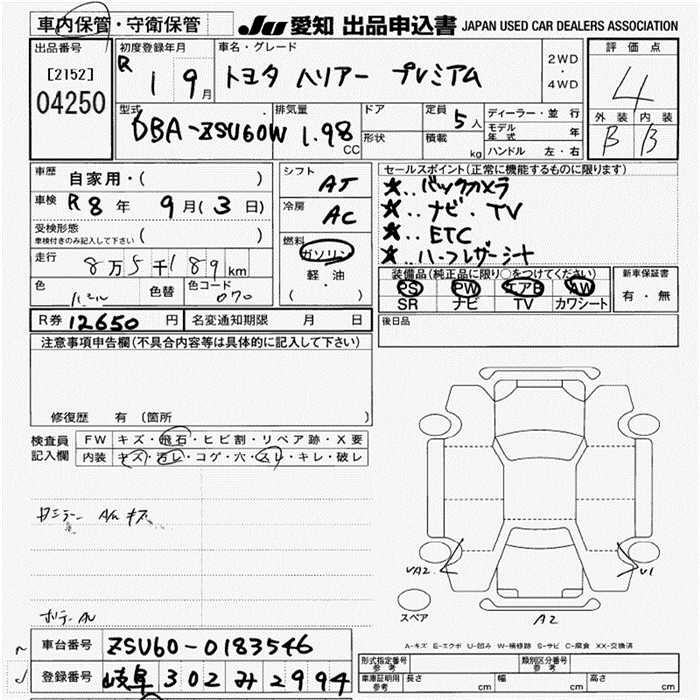 車内保管・守衛保管
JU 愛知 出品申込書 JAPAN USED CAR DEALERS ASSOCIATION
出品番号
[2152]
04250
初度登録年月
R 1 9月
車名・グレード
トヨタ ハリアー プレミアム
2WD
・
4WD
評価点
4
外装 内装
B B
型式
DBA-ZSU60W
排気量
1.98 CC
ドア
形状
定員
5人
積載
kg
ディーラー・並行
モデル年式 年
ハンドル 左・右
車歴
自家用・( )
車検 R8年 9月(3日)
受検形態
車検付きのみ記入して下さい ( )
走行
8万5千189km
色
パール
色替
色コード
070
シフト
AT
冷房
AC
燃料
ガソリン
軽・油
( )
セールスポイント(正常に機能するものに限ります)
★‥バックカメラ
★‥ナビ・TV
★‥ETC
★‥ハーフレザーシート
装備品(純正品に限り○をつけてください)
PS PW エアB AW
SR ナビ TV カワシート
新車保証書
有・無
R券 12650円
名変通知期限 月 日
後日品
注意事項申告欄(不具合内容等は具体的に記入して下さい)
修復歴 有(箇所 )
検査員
記入欄
FW キズ・飛石・ヒビ割・リペア跡・X要
内装 キズ・汚レ・コゲ・穴・スレ・キレ・破レ
VA2
U1
A2
スペア
A-キズ E-エクボ U-凹み W-補修跡 S-サビ C-腐食 XX-交換済
車台番号 ZSU60-0183546
登録番号 岐阜 302 み 2994
型式指定番号
参考
類別区分番号
参考
車庫証明用
参考
長さ cm 幅 cm 高さ cm